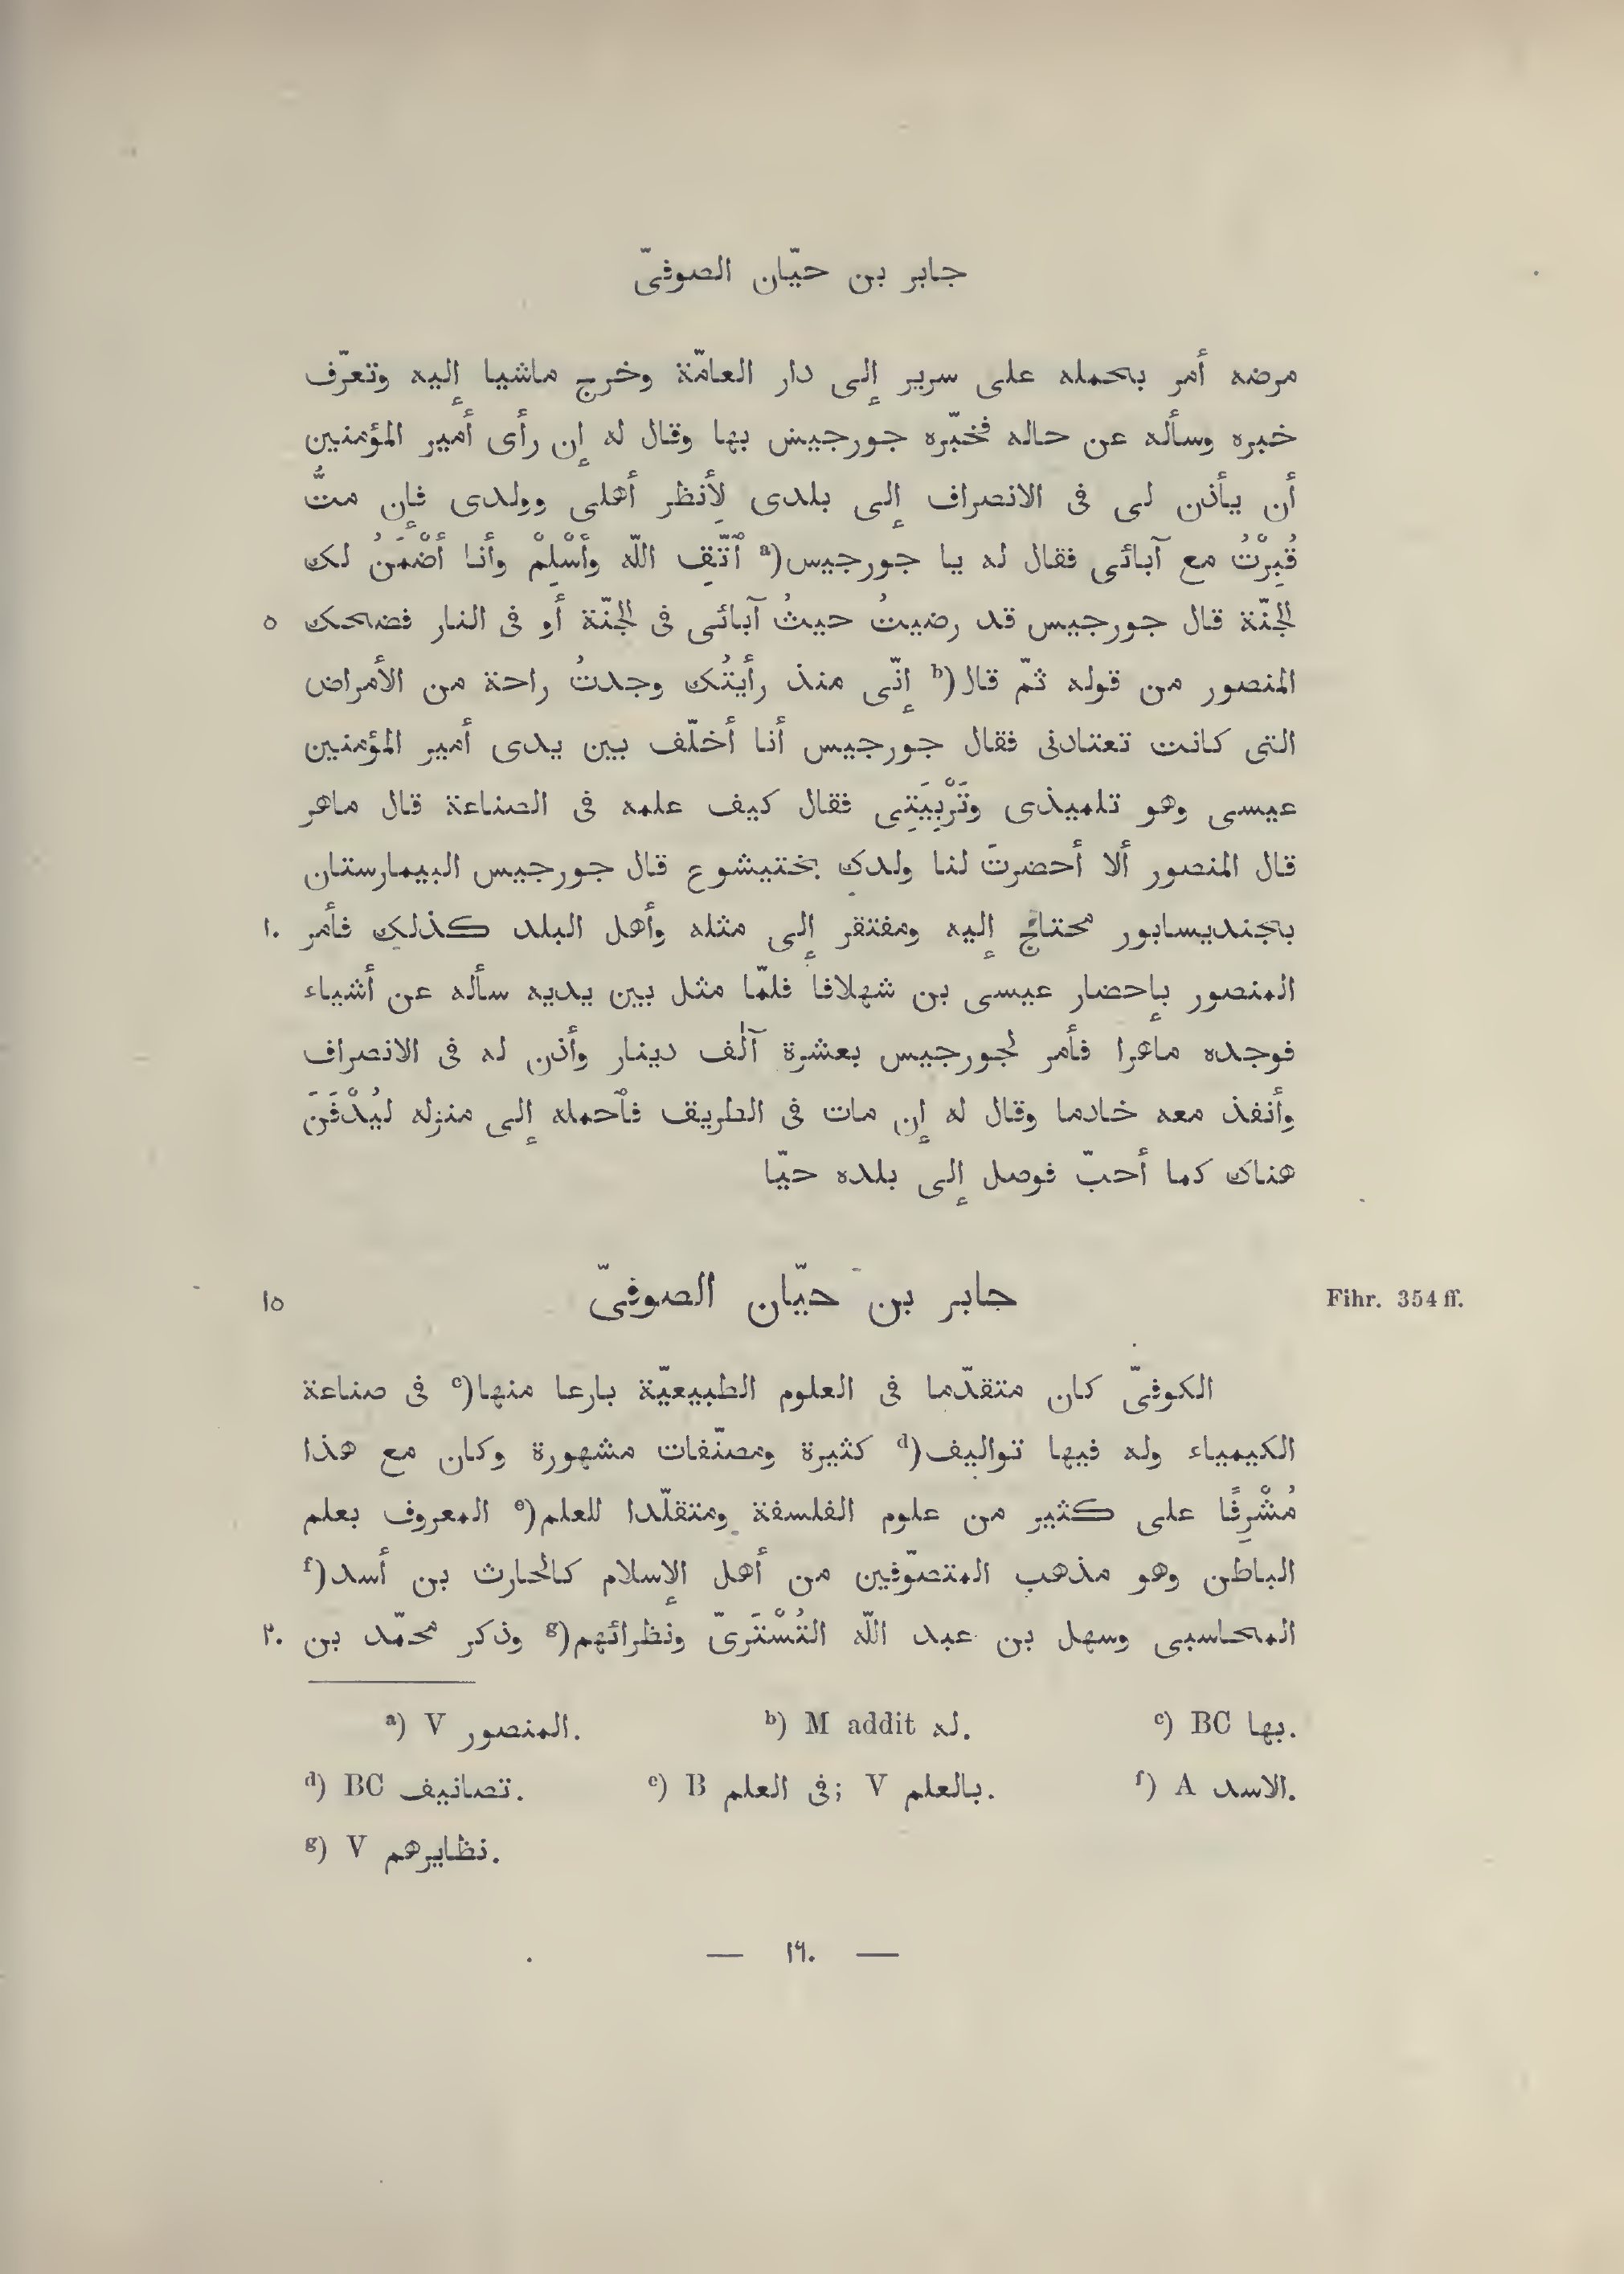 جابر بن حيّان الصوفىّ
مرضه أمر بحمله على سرير إلى دار العامّة وخرج ماشيا إليه وتعرّف
خبره وسأله عن حاله فخبّره جورجيس بها وقال له إن رأى أمير المؤمنين
أن يأذن لى فى الانصراف إلى بلدى لِأنظر أهلى وولدى فإن متُّ
قُبِرْتُ مع آبائى فقال له يا جورجيس(a ٱتَّقِ اللّٰه وأَسْلِمْ وأنا أَضْمَنُ لك
الجنّة قال جورجيس قد رضيتُ حيثُ آبائى فى الجنّة أو فى النار فضحك ٥
المنصور من قوله ثمّ قال(b إنّى منذ رأيتُك وجدتُ راحة من الأمراض
التى كانت تعتادنى فقال جورجيس أنا أخلّف بين يدى أمير المؤمنين
عيسى وهو تلميذى وتَرْبِيَتِى فقال كيف علمه فى الصناعة قال ماهر
قال المنصور ألا أحضرتَ لنا ولدك بختيشوع قال جورجيس البيمارستان
بجنديسابور محتاج إليه ومفتقر إلى مثله وأهل البلد كذلك فأمر ١٠
المنصور بإحضار عيسى بن شهلافا فلمّا مثل بين يديه سأله عن أشياء
فوجده ماهرا فأمر لجورجيس بعشرة آلٰف دينار وأذن له فى الانصراف
وأنفذ معه خادما وقال له إن مات فى الطريق فٱحمله إلى منزله ليُدْفَنَ
هناك كما أحبّ فوصل إلى بلده حيّا
جابر بن حيّان الصوفىّ ١٥
Fihr. 354 ff.
الكوفىّ كان متقدّما فى العلوم الطبيعيّة بارعا منها(c فى صناعة
الكيمياء وله فيها تواليف(d كثيرة ومصنّفات مشهورة وكان مع هذا
مُشْرِفًا على كثير من علوم الفلسفة ومتقلّدا للعلم(e المعروف بعلم
الباطن وهو مذهب المتصوّفين من أهل الإسلام كالحارث بن أسد(f
المحاسبى وسهل بن عبد اللّٰه التُسْتَرىّ ونظرائهم(g وذكر محمّد بن ٢٠
a) V المنصور. b) M addit له. c) BC بها.
d) BC تصانيف. e) B فى العلم; V بالعلم. f) A الاسد.
g) V نظايرهم.
— ١٦٠ —